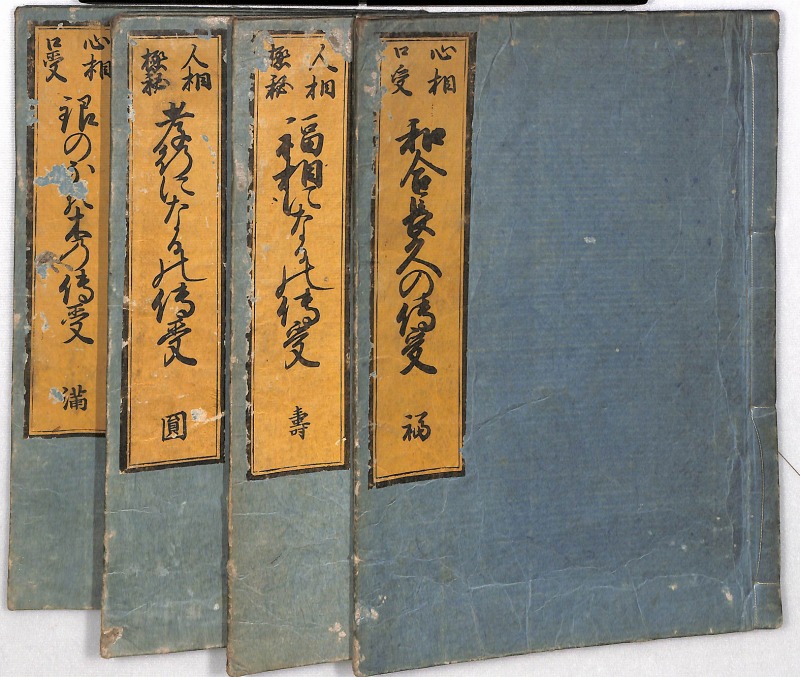 心相
口受
和合長久の傳受
福
人相
極秘
福相になるの傳受
壽
人相
極秘
孝行になるの傳受
圓
心相
口受
銀の 木の傳受
滿